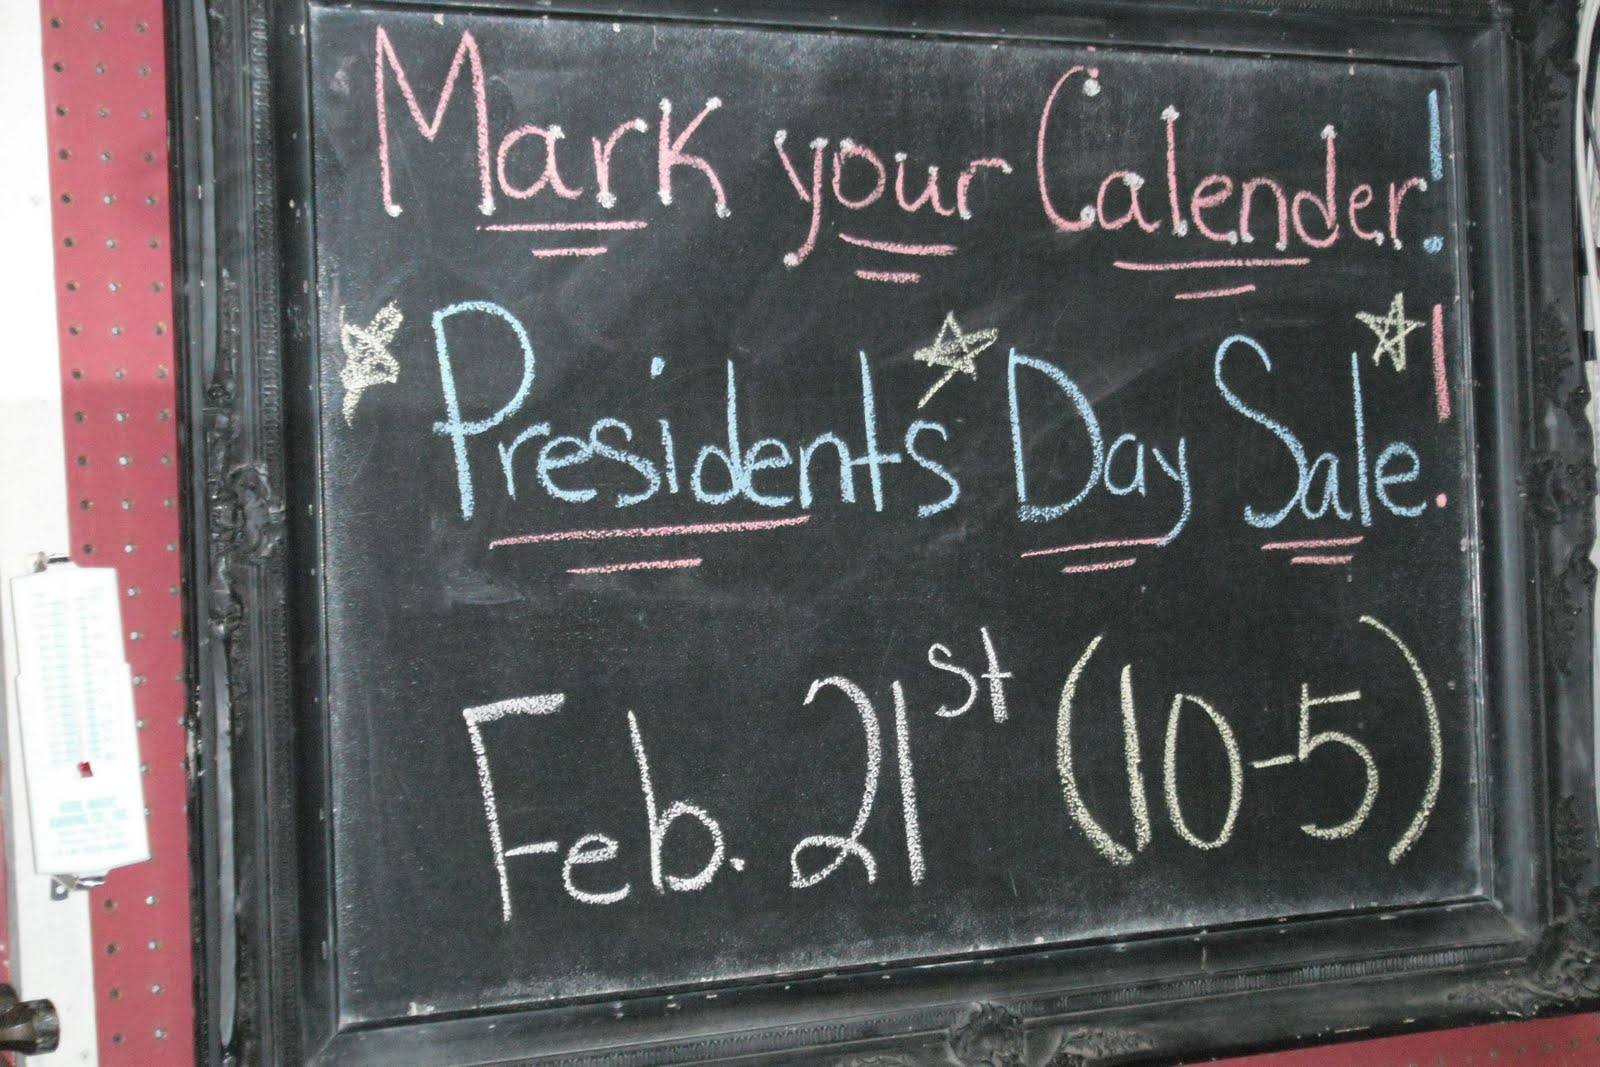 Mark your Calender!
Presidents Day Sale!
Feb. 21st (10-5)